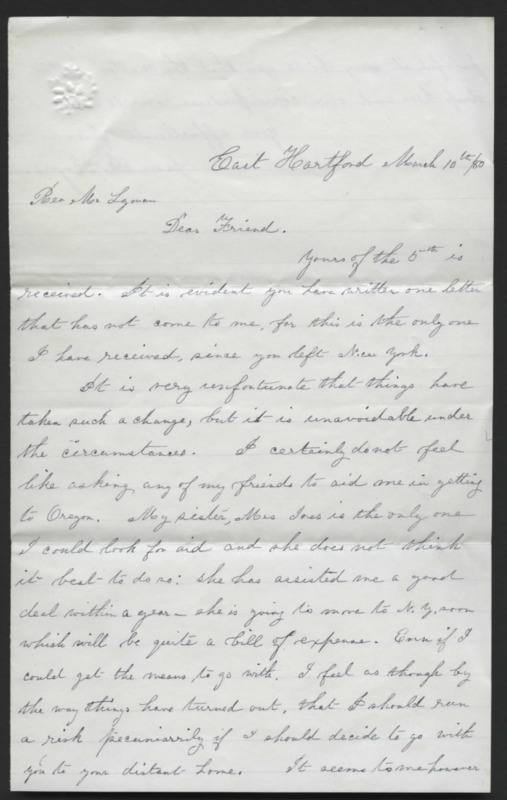 East Hartford March 10th/80
Rev Mr Lyman
Dear Friend.
Yours of the 5th is
received. It is evident you have written one letter
that has not come to me, for this is the only one
I have received, since you left New York.
It is very unfortunate that things have
taken such a change, but it is unavoidable under
the circumstances. I certainly do not feel
like asking any of my friends to aid me in getting
to Oregon. My sister, Mrs Ives is the only one
I could look for aid and she does not think
it best to do so: she has assisted me a good
deal within a year – she is going to move to N.Y, soon
which will be quite a bill of expense. Even if I
could get the means to go with. I feel as though by
the way things have turned out, that I should run
a risk pecuniarrily if I should decide to go with
you to your distant home. It seems to me however